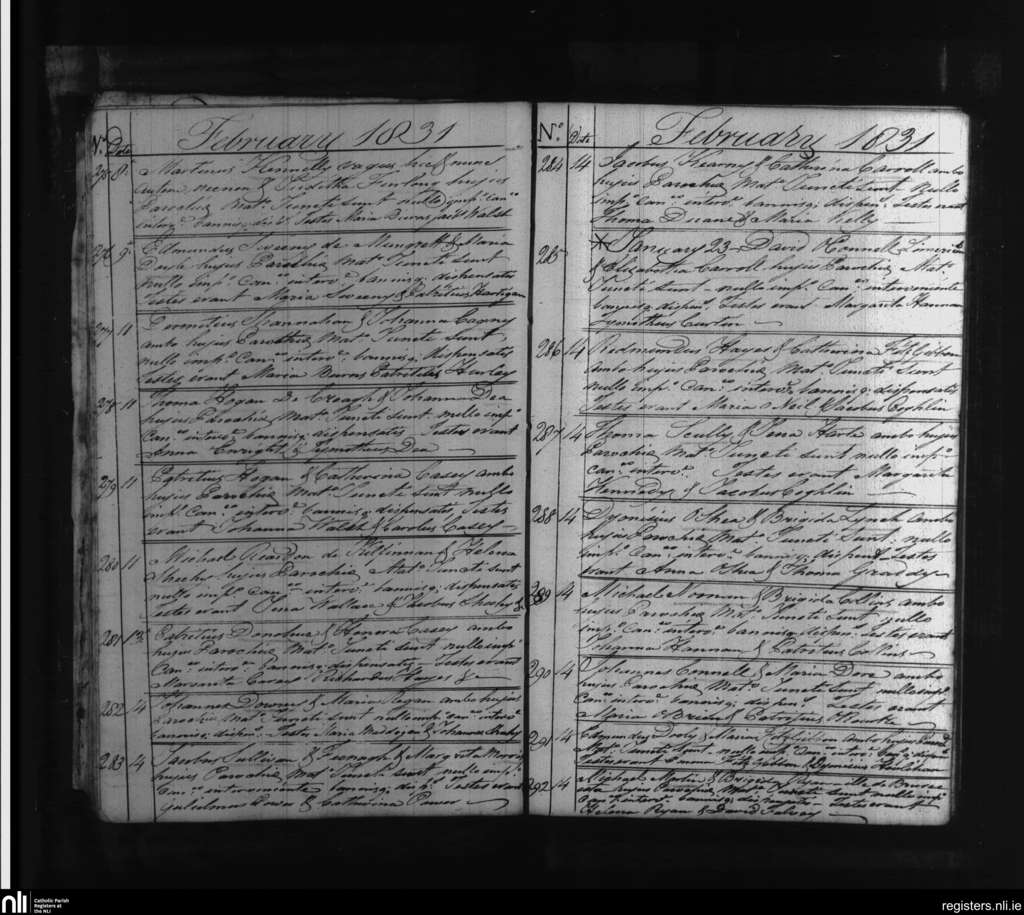 No. Date February 1831
275 8 Martinus Hennelly vagus hic & nunc
& Juditha Furlong hujus
Parochiæ Mato. Juncti sunt nullo impo. Cano.
intero. bannisq; Testes Maria Burns Walsh
276 9 Edmundus Sweeny de Mungrett & Maria
Doyle hujus Parochiæ Mato. Juncti sunt
nullo impo. Cano. intero. bannisq; dispensatis
Testes erant Maria Sweeny & Patritius Hartigan
277 11 Dermotius Shannahan & Johanna Carney
ambo hujus Parochiæ Mato. Juncti sunt
nullo impo. Cano. intero. bannisq; dispensatis
Testes erant Maria Burns Patritius Hurley
278 11 Thoma Hogan de Creagh & Johanna Dea
hujus Parochiæ Mato. Juncti sunt nullo impo.
Cano. intero. bannisq; dispensatis Testes erant
Anna Enright & Tymotheus Dea
279 11 Patritius Hogan & Catherina Casey ambo
hujus Parochiæ Mato. Juncti sunt nullo
impo. Cano. intero. bannisq; dispensatis, Testes
erant Johanna Walsh & Carolus Casey
280 11 Michael Reardon de Killinnan & Helena
Sheehy hujus Parochiæ Mato. Juncti sunt
nullo impo. Cano. intero. bannisq; dispensatis
Testes erant Wallace & Jacobus Sheehy &c
281 13 Patritius Donohue & Honora Casey ambo
hujus Parochiæ Mato. Juncti sunt nullo impo.
Cano. intero. Bannisq; dispensatis Testes erant
Margarita Carey Richardus Hayes &c
282 14 Johannes Downes & Maria Regan ambo hujus
Parochiæ Mato. Juncti sunt nullo impo. Cano. intero.
bannisq; dispo. Testes Maria Madigan & Johannes Sheehy
283 14 Jacobus Sullivan & Margret Morris
hujus Parochiæ Mato. Juncti sunt nullo impo.
Cano. interveniente bannisq; Testes erant
Gulielmus Power & Catherina Power
No. Date February 1831
284 14 Jacobus Kearny & Catherina Carroll ambo
hujus Parochiæ Mato. Juncti sunt nullo
impo. Cano. intero. bannisq; dispeno. Testes erant
Thoma Duane & Maria Kelly
285 * January 23 David OConnell Limerick
& Elizabetha Carroll hujus Parochiæ Mato.
Juncti sunt nullo impo. Cano. interveniente
bannisq; dispeno. Testes erant Margarita Hannan
Tymotheus Curtin
286 14 Redmondus Hayes & Catherina FitzGibbon
ambo hujus Parochiæ Mato. Juncti sunt
nullo impo. Cano. intero. bannisq; dispensatis
Testes erant Maria o Neil & Jacobus Coghlin
287 14 Thoma Scully & Harte ambo hujus
Parochiæ Mato. Juncti sunt nullo impo.
Cano. intero. Testes erant Margarita
Kennedy & Jacobus Coghlin
288 14 Dyonisius OShea & Brigida Lynch ambo
hujus Parochiæ Mato. Juncti sunt nullo
impo. Cano. intero. bannisq; dispeno. Testes
erant Anna OShea & Thoma Grady
289 14 Michael Noonan & Brigida Collins ambo
hujus Parochiæ Mato. Juncti sunt nullo
impo. Cano. intero. bannisq; dispeno. Testes erant
Johanna Hannan & Patritius Collins
290 14 Johannes Connell & Maria Dore ambo
hujus Parochiæ Mato. Juncti sunt nullo impo.
Cano. intero. bannisq; dispeno. Testes erant
Maria OBrien & Patritius ORourke
291 14 Edmundus Dooly & Maria FitzGibbon ambo hujus Paroo.
Mato. Juncti sunt nullo impo. Cano. intero.
Testes erant FitzGibbon & Dyonisius
292 14 Michael Martin & Brigida de Bruree
hujus Parochiæ Mato. Juncti sunt nullo impo.
Cano. intero. bannisq; dispensatis Testes erant
Helena Ryan & David Falvey
nli Catholic Parish
Registers at
the NLI
registers.nli.ie